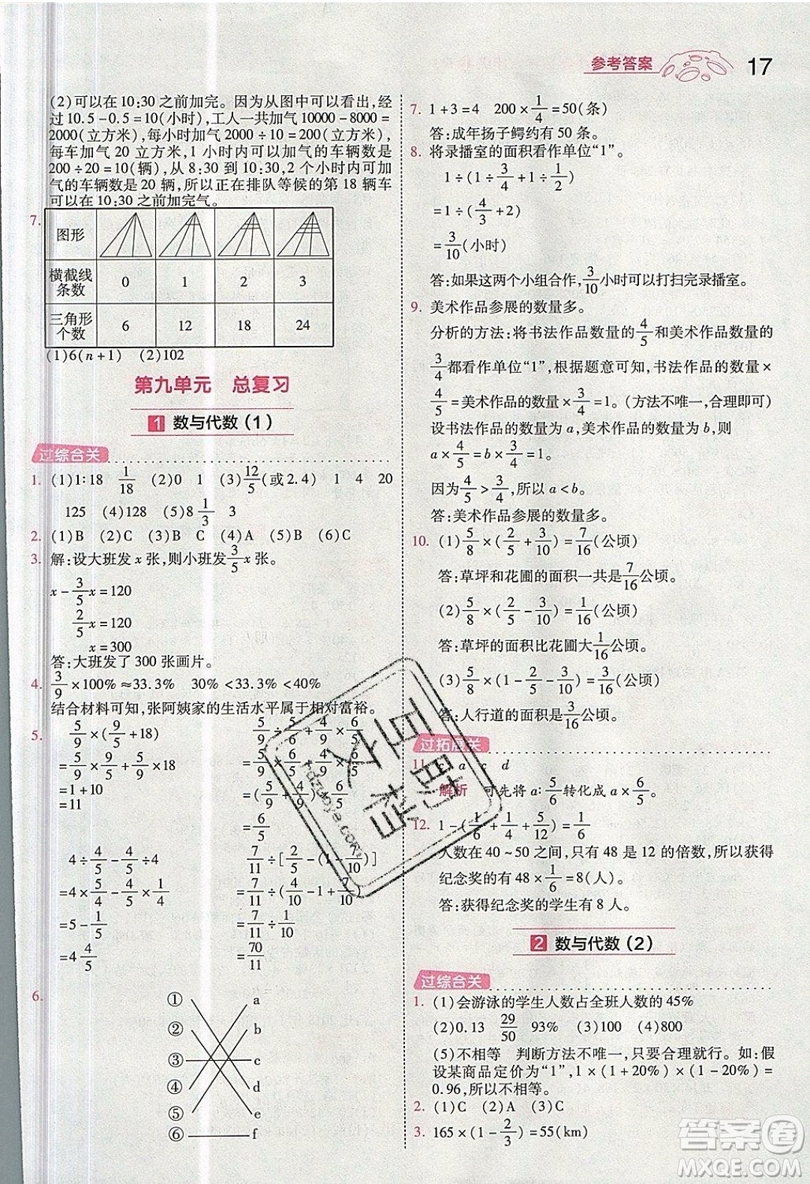 参考答案 17
(2)可以在10:30之前加完。因为从图中可以看出,经
过10.5-0.5=10(小时),工人一共加气10000-8000=
2000(立方米),每小时加气2000÷10=200(立方米),
每车加气20立方米,1小时内可以加气的车辆数是
200÷20=10(辆),从8:30到10:30,2小时内可以加
气的车辆数是20辆,所以正在排队等候的第18辆车
可以在10:30之前加完气。
7.
图形
横截线条数 0 1 2 3
三角形个数 6 12 18 24
(1)6(n+1) (2)102
第九单元 总复习
1 数与代数(1)
过综合关
1. (1)1:18 1/18 (2)0 1 (3)12/5(或2.4) 1 4 20
125 (4)128 (5)8 1/3 3
2. (1)B (2)C (3)C (4)B
3. 解:设大班发x张,则小班发3/5x张。
x-3/5x=120
2/5x=120
x=300
答:大班发了300张画片。
4. 3/9×100%≈33.3% 30%<33.3%<40%
结合材料可知,张阿姨家的生活水平属于相对富裕。
5. 5/9×(9/5+18)
=5/9×9/5+5/9×18
=1+10
=11
4÷4/5-4/5÷4
=4×5/4-4/5×1/4
=5-1/5
=4 4/5
7/11÷[4/5-(1-9/10)]
=7/11÷(4/5-1+9/10)
=7/11÷7/10
=70/11
6.
① a
② b
③ c
④ d
⑤ e
⑥ f
7. 1+3=4 200×1/4=50(条)
答:成年扬子鳄约有50条。
8. 将录播室的面积看作单位“1”。
1÷(1÷3/4+1÷1/2)
=1÷(4/3+2)
=3/10(小时)
答:如果这两个小组合作,3/10小时可以打扫完录播室。
9. 美术作品参展的数量多。
分析的方法:将书法作品数量的4/5和美术作品数量的
3/4都看作单位“1”。根据题意可知,书法作品的数量×
4/5=美术作品的数量×3/4=1。(方法不唯一,合理即可)
设书法作品的数量为a,美术作品的数量为b,则
a×4/5=b×3/4=1。
因为4/5>3/4,所以a<b。
答:美术作品参展的数量多。
10. (1)5/8×(2/5+3/10)=7/16(公顷)
答:草坪和花圃的面积一共是7/16公顷。
(2)5/8×(2/5-3/10)=1/16(公顷)
答:草坪的面积比花圃大1/16公顷。
答:人行道的面积是3/16公顷。
过拓展关
11. c a d
解析 可先将a÷5/6转化成a×6/5。
12. 1-(1/6+1/4+5/12)=1/6
人数在40~50之间,只有48是12的倍数,所以获得
纪念奖的有48×1/6=8(人)。
答:获得纪念奖的学生有8人。
2 数与代数(2)
过综合关
1. (1)会游泳的学生人数占全班人数的45%
(2)0.13 29/50 93% (3)100 (4)800
(5)不相等 判断方法不唯一,只要合理就行。如:假
设某商品定价为“1”,1×(1+20%)×(1-20%)=
0.96,所以不相等。
2. (1)C (2)A
3. 165×(1-2/3)=55(km)
答案圈
MXQE.COM